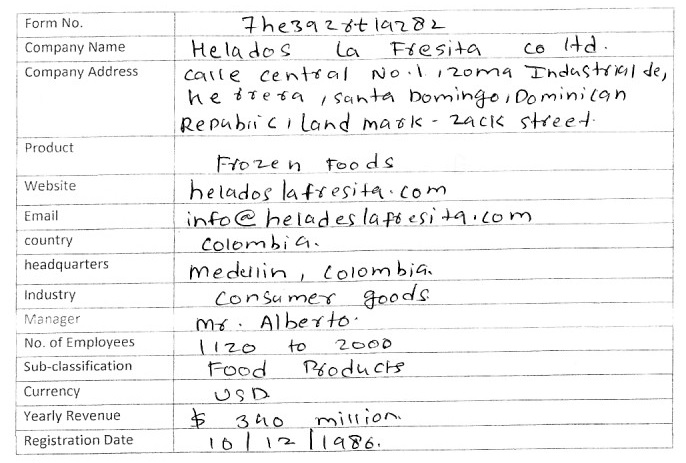 Form No. 7he392rt19282
Company Name Helados La Fresita co ltd.
Company Address calle central No.1, zoma Industrial de,
herrera, santa Domingo, Dominican
Repubric, land mark - zack street.
Product Frozen Foods
Website heladoslafresita.com
Email info@heladeslafresita.com
country Colombia.
headquarters Medellin, Colombia.
Industry Consumer goods
Manager Mr. Alberto.
No. of Employees 1120 to 2000
Sub-classification Food Products
Currency USD
Yearly Revenue $ 390 million.
Registration Date 10/12/1986.